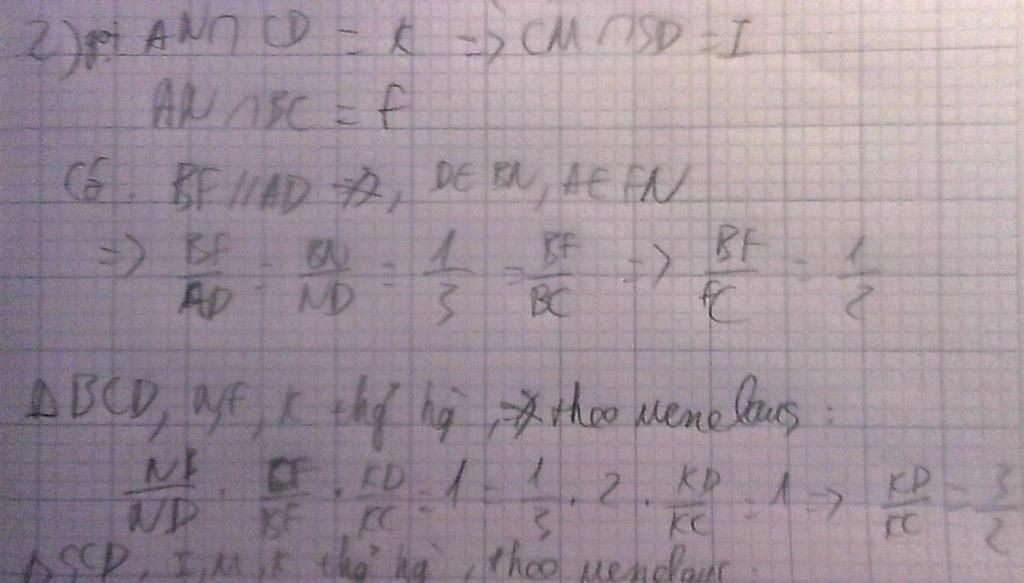 2) gọi AN ∩ CD = K => CM ∩ SD = I
AN ∩ BC = F
Có: BF // AD, D ∈ BN, A ∈ FN
=> BF/AD = BN/ND = 1/3 = BF/BC => BF/FC = 1/2
Δ BCD, N, F, K thg hg, theo menelaus:
NB/ND . CF/BF . KD/KC = 1 = 1/3 . 2 . KD/KC = 1 => KD/KC = 3/2
Δ SCD, I, M, K thg hg, theo menelaus: